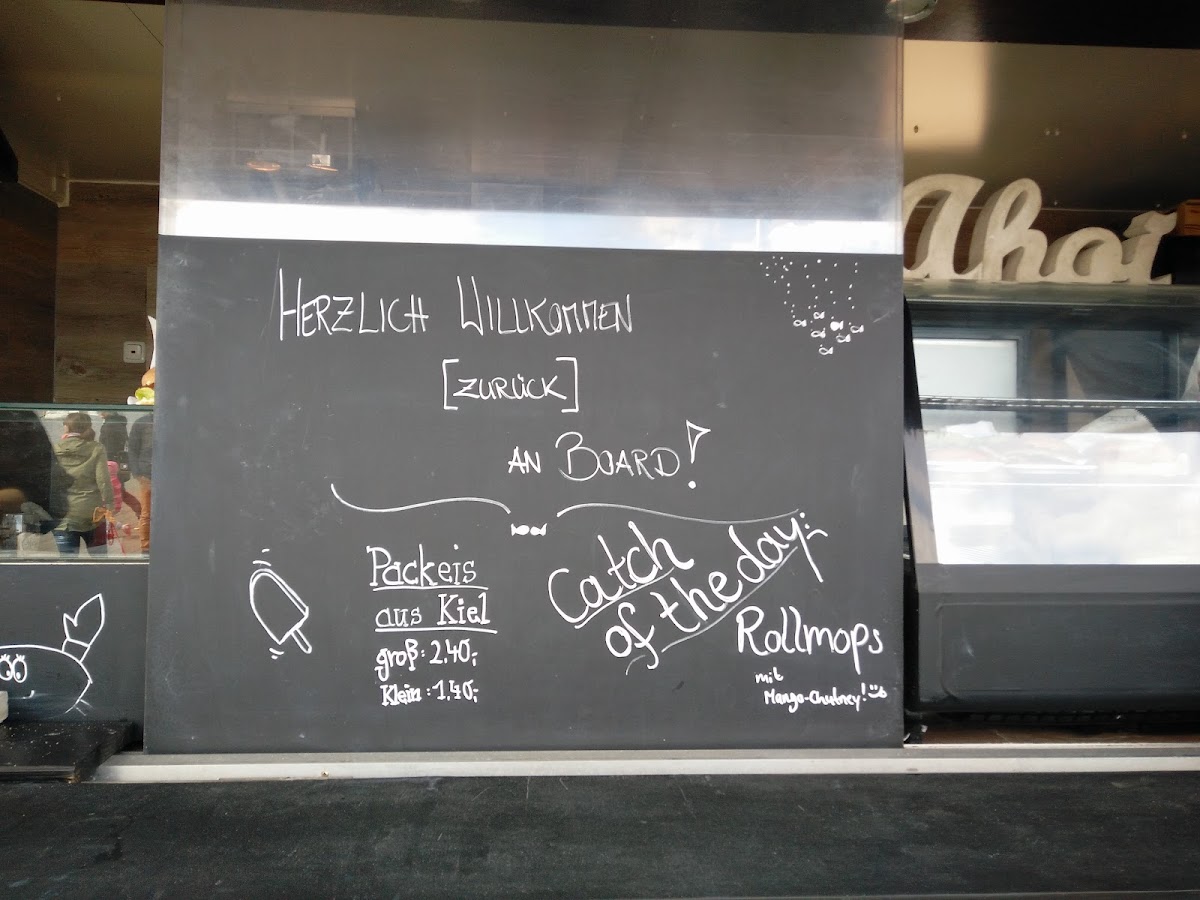 Ahoi
HERZLICH WILLKOMMEN
[ZURÜCK]
AN BOARD!
Packeis
aus Kiel
groß: 2.40,-
Klein: 1.40,-
Catch
of the day:
Rollmops
mit
Mango-Chutney!